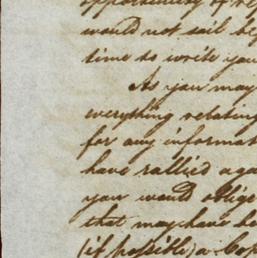 opportunity of
would not sail
time to write you
As you may
everything relating
for any informat
have rallied aga
you would oblige
that may have be
(if possible) a Cop